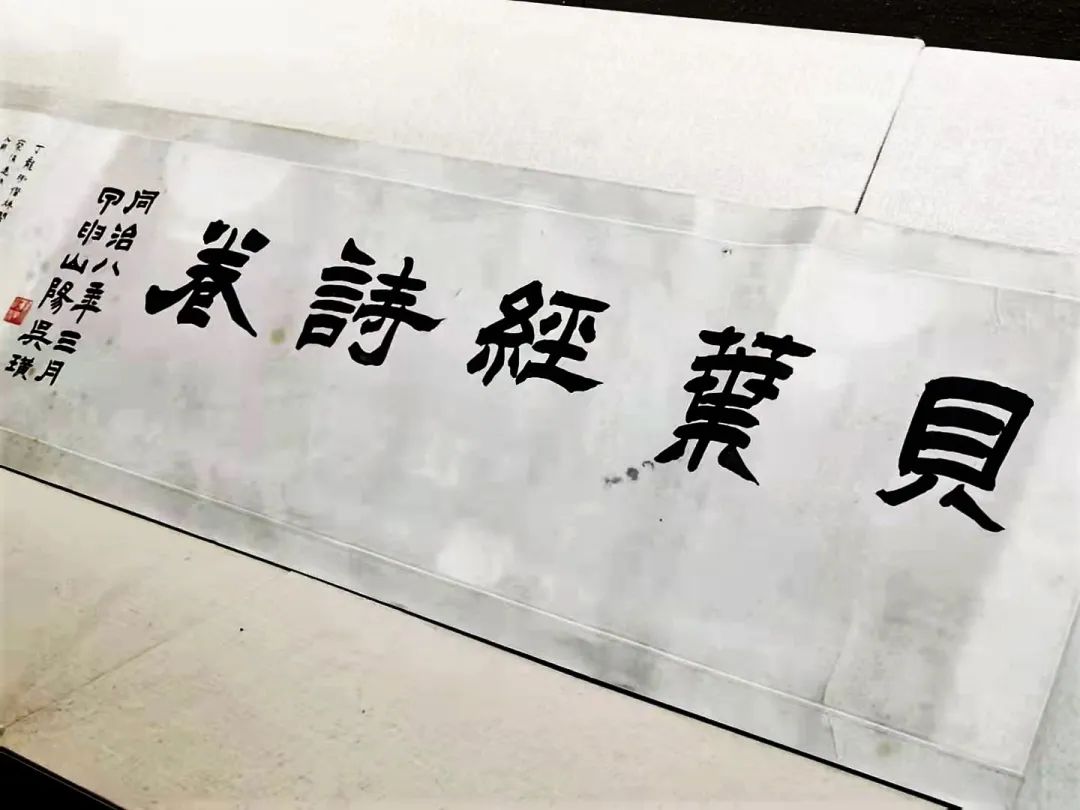 貝葉經詩卷
同治八年三月
甲申山陽吳璜